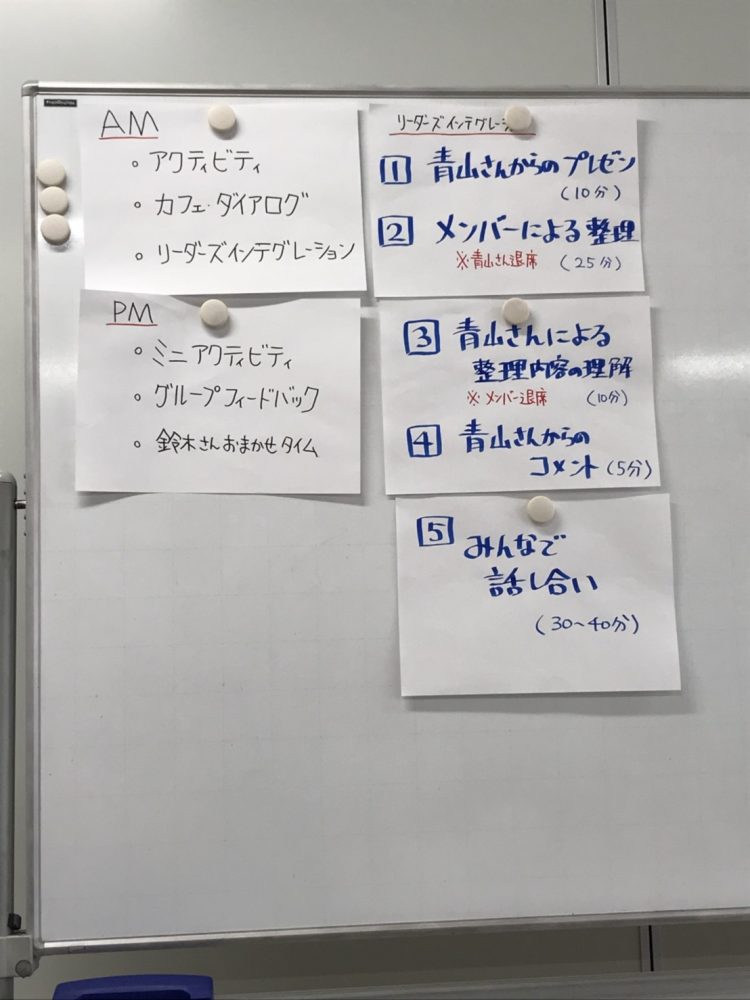 AM
・アクティビティ
・カフェ・ダイアログ
・リーダーズインテグレーション
PM
・ミニアクティビティ
・グループフィードバック
・鈴木さんおまかせタイム
リーダーズインテグレーシ
1 青山さんからのプレゼン
(10分)
2 メンバーによる整理
※青山さん退席 (25分)
3 青山さんによる
整理内容の理解
※メンバー退席 (10分)
4 青山さんからの
コメント (5分)
5 みんなで
話し合い
(30~40分)